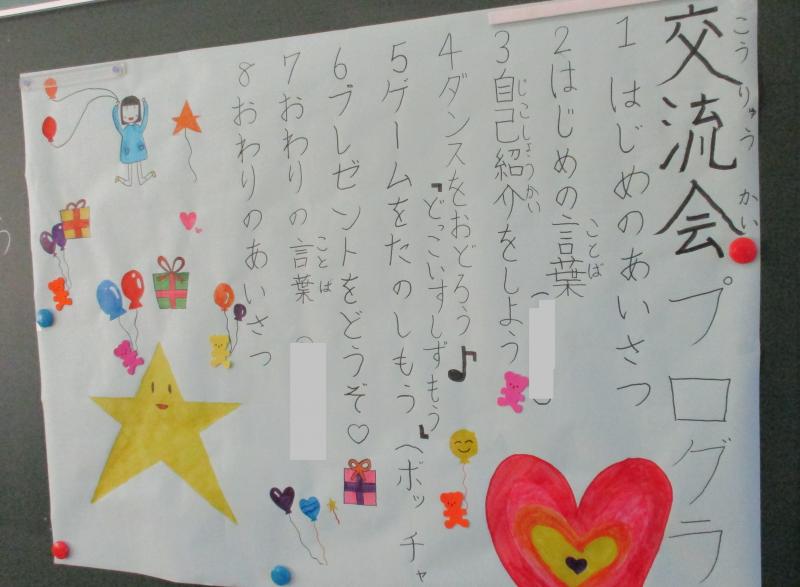 交流会プログラ
こうりゅうかい
1 はじめのあいさつ
2 はじめの言葉(
ことば
3 自己紹介をしよう
じこしょうかい
4 ダンスをおどろう♪
『どっこいすしずもう』
5 ゲームをたのしもう(ボッチャ
6 プレゼントをどうぞ♡
7 おわりの言葉(
ことば
8 おわりのあいさつ